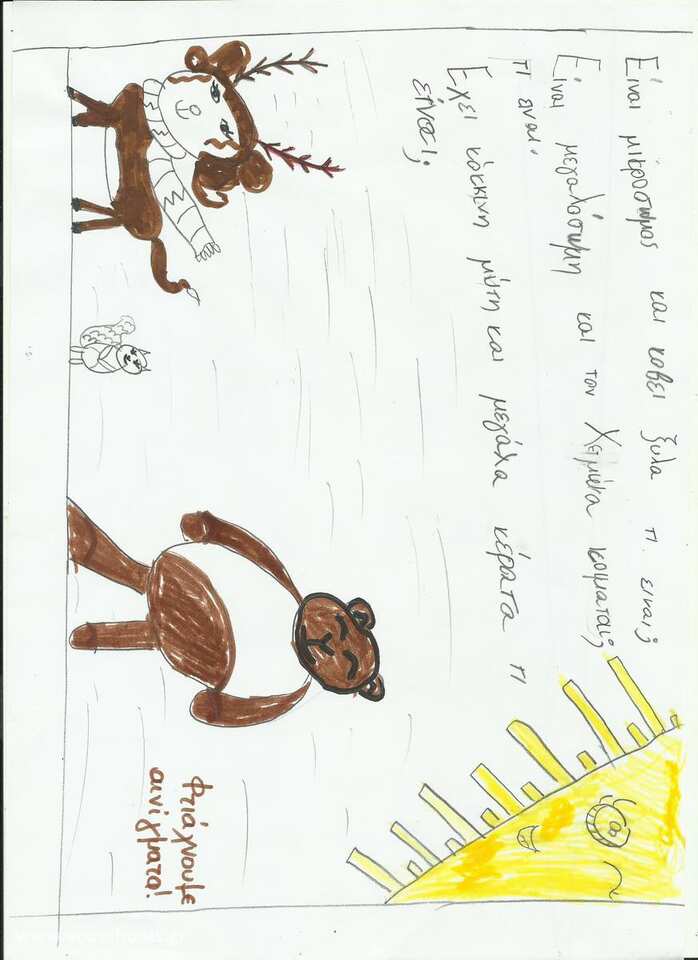 Είναι μικρόσωμος και κοβει ξυλα τι ειναι;
Είναι μεγαλόσωμη και τον Χειμώνα κοιμαται;
τι ειναι.
Εχει κόκκινη μύτη και μεγάλα κέρατα τι
είναι;
Φτιάχνουμε
αινίγματα!